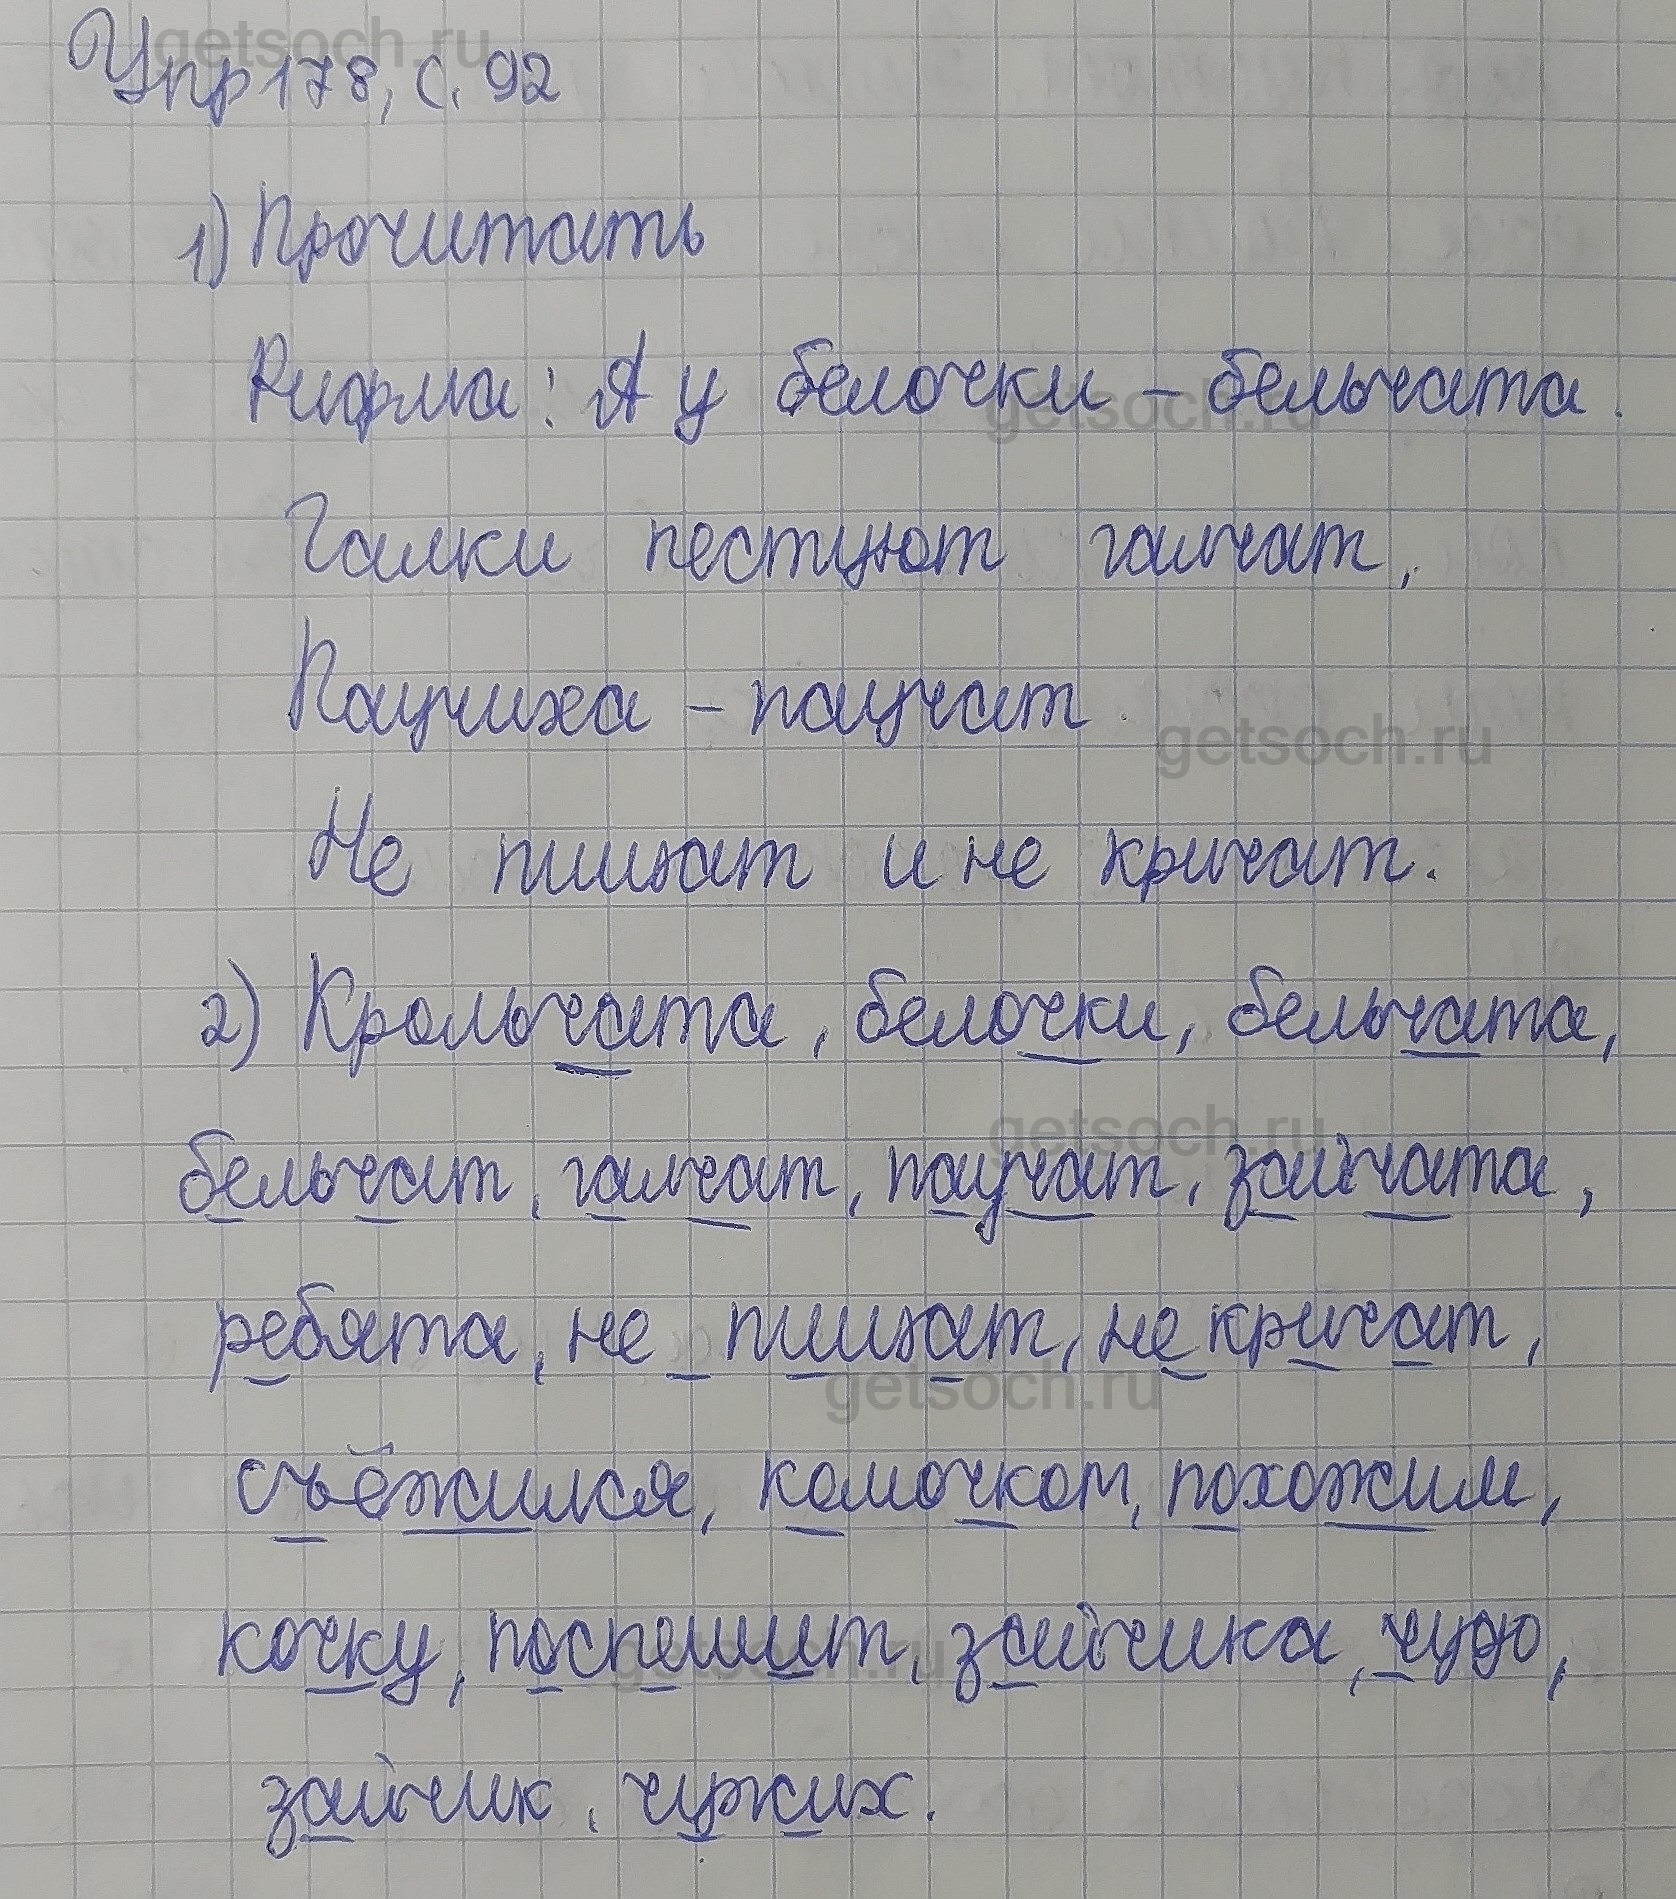 getsoch.ru
Упр 178, с. 92
1) Прочитать
Рифма: А у белочки – бельчата.
getsoch.ru
Галки пестуют галчат,
Паучиха – паучат
getsoch.ru
Не пищат и не кричат.
2) Крольчата, белочки, бельчата,
getsoch.ru
бельчат, галчат, паучат, зайчата,
ребята, не пищат, не кричат,
getsoch.ru
съёжился, комочком, похожим,
кочку, поспешит, зайчика, чудо,
getsoch.ru
зайчик, чужих.